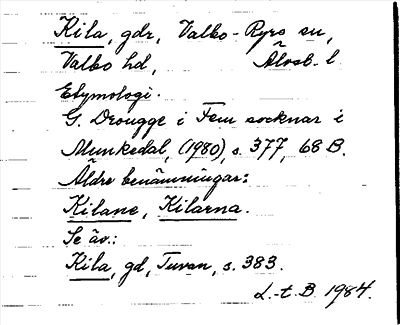 Kila, gdr, Valbo-Ryrs sn,
Valbo hd, Älvsb. l.
Etymologi.
G. Drougge i Fem socknar i
Munkedal, (1980), s. 377, 68 B.
Äldre benämningar:
Kilane, Kilarna.
Se äv.:
Kila, gd, Tuvan, s. 383.
L.-t. B. 1984.